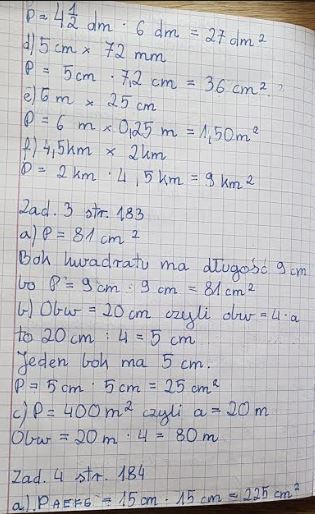 P = 4 1/2 dm · 6 dm = 27 dm²
d) 5 cm × 72 mm
P = 5cm · 7,2 cm = 36 cm²
e) 6 m × 25 cm
P = 6 m × 0,25 m = 1,50 m²
f) 4,5km × 2km
P = 2 km · 4,5 km = 9 km²
Zad. 3 str. 183
a) P = 81 cm²
Bok kwadratu ma długość 9 cm
bo P = 9 cm · 9 cm = 81 cm²
b) Obw = 20cm czyli obw = 4·a
to 20 cm : 4 = 5 cm
Jeden bok ma 5 cm.
P = 5 cm · 5 cm = 25 cm²
c) P = 400 m² czyli a = 20 m
Obw = 20 m · 4 = 80 m
Zad. 4 str. 184
a) PAEFG = 15 cm · 15 cm = 225 cm²